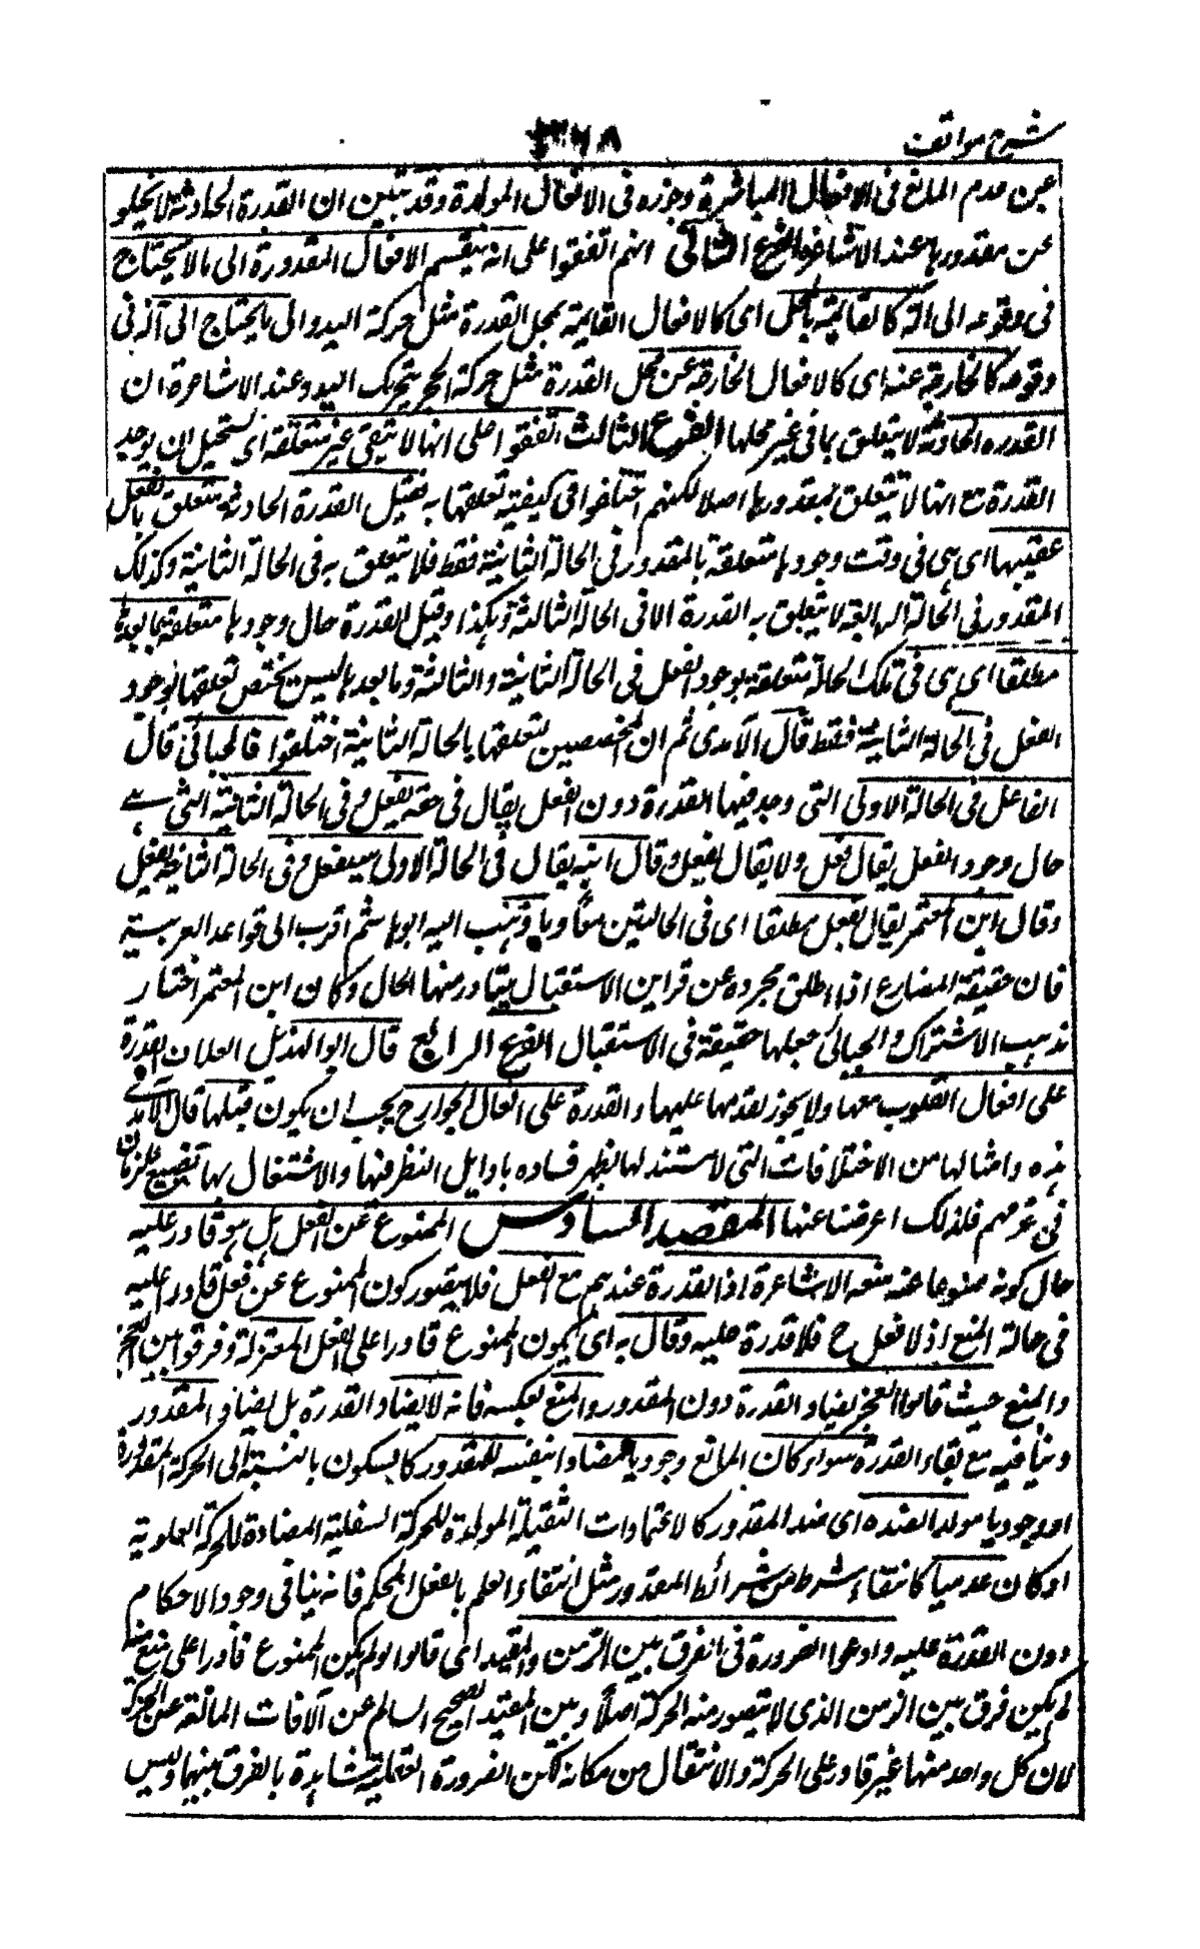 شرح مواقف
٣٦٨
عين عدم المانع فى الافعال المباشرة وجوزه فى الافعال المولدة وقد تبين ان القدرة الحادثة لا يخلو
عن مقدورها عند الاشاعرة الفرع الثانى انهم اتفقوا على انه ينقسم الافعال المقدورة الى ما لا يحتاج
فى وقوعه الى آلة كالقائمة بالمحل اى كالافعال القايمة بمحل القدرة مثل حركة اليد والى ما يحتاج الى آلة فى
وقوعه كالخارجة عنه اى كالافعال الخارجة عن محل القدرة مثل حركة الحجر بتحريك اليد وعند الاشاعرة ان
القدرة الحادثة لا يتعلق بما فى غير محلها الفرع الثالث اتفقوا على انها لا تبقى غير متعلقة اى يستحيل ان يوجد
القدرة مع انها لا تتعلق بمقدورها اصلا لكنهم اختلفوا فى كيفية تعلقها به فقيل القدرة الحادثة متعلق بالفعل
عقيبها اى هى فى وقت وجودها متعلقة بالمقدور فى الحالة الثانية فقط فلا يتعلق به فى الحالة الثانية وكذلك
المقدور فى الحالة لا يتعلق به القدرة الا فى الحالة الثالثة وهكذا وقيل القدرة حال وجودها متعلقة بما بعدها
مطلقا اى هى فى تلك الحالة متعلقة بوجود الفعل فى الحالة الثانية والثالثة وما بعدها ليس يختص تعلقها بوجود
الفعل فى الحالة الثانية فقط قال الآمدى ثم ان المخصصين لتعلقها بالحالة الثانية اختلفوا فالجبائى قال
الفاعل فى الحالة الاولى التى وجد فيها القدرة دون الفعل يقال فى حقه يفعل وفى الحالة الثانية التى هے
حال وجود الفعل يقال فعل ولا يقال يفعل وقال ابنه يقال فى الحالة الاولى سيفعل وفى الحالة الثانية يفعل
وقال ابن المعتمر يقال يفعل مطلقا اى فى الحالتين معًا وما ذهب اليه ابو هاشم اقرب الى قواعد العربية
فان حقيقة المضارع اذا اطلق مجردة عن قراين الاستقبال يتبادر منها الحال وكان ابن المعتمر اختار
مذهب الاشتراك والجبائى جعلها حقيقة فى الاستقبال الفرع الرابع قال ابو الهذيل العلاف القدرة
على افعال القلوب معها ولا يجوز تقدمها عليها والقدرة على افعال الجوارح يجب ان يكون قبلها قال الآمدے
هذه وامثالها من الاختلافات التى لا مستند لها يظهر فساده باوايل النظر فيها والاشتغال بها تضييع للزمان
فى غير مهم فلذلك اعرضنا عنها المقصد السادس الممنوع عن الفعل هل هو قادر عليه
حال كونه ممنوعا عنه منعه الاشاعرة اذ القدرة عندهم مع الفعل فلا يتصور كون الممنوع عن فعل قادر عليه
فى حالة المنع اذ لا فعل ح فلا قدرة عليه وقال به اى بكون الممنوع قادرا على الفعل المعتزلة وفرقوا بين العجز
والمنع حيث قالوا العجز يضاد القدرة دون المقدور والمنع بعكسه فانه لا يضاد القدرة بل يضاد المقدور
وينافيه مع بقاء القدرة سواء كان المانع وجوديا مضادا بنفسه للمقدور كالسكون بالنسبة الى الحركة المقدورة
او وجوديا مولد الضده اى ضد المقدور كالاعتمادات الثقيلة المولدة للحركة السفلية المضادة للحركة العلوية
او كان عدميا كانتفاء شرط من شرائط المقدور مثل انتفاء العلم بالفعل المحكم فانه ينافى وجود الاحكام
دون القدرة عليه وادعوا الضرورة فى الفرق بين الزمن والمقيد اى قالوا لو لم يكن الممنوع قادرا على ما منع منه
لم يكن فرق بين الزمن الذى لا يتصور منه الحركة اصلًا وبين المقيد الصحيح السالم عن الآفات المانعة عن الحركة
لان كل واحد منهما غير قادر على الحركة والانتقال من مكانه لكن الضرورة العقلية شاهدة بالفرق بينهما وليس